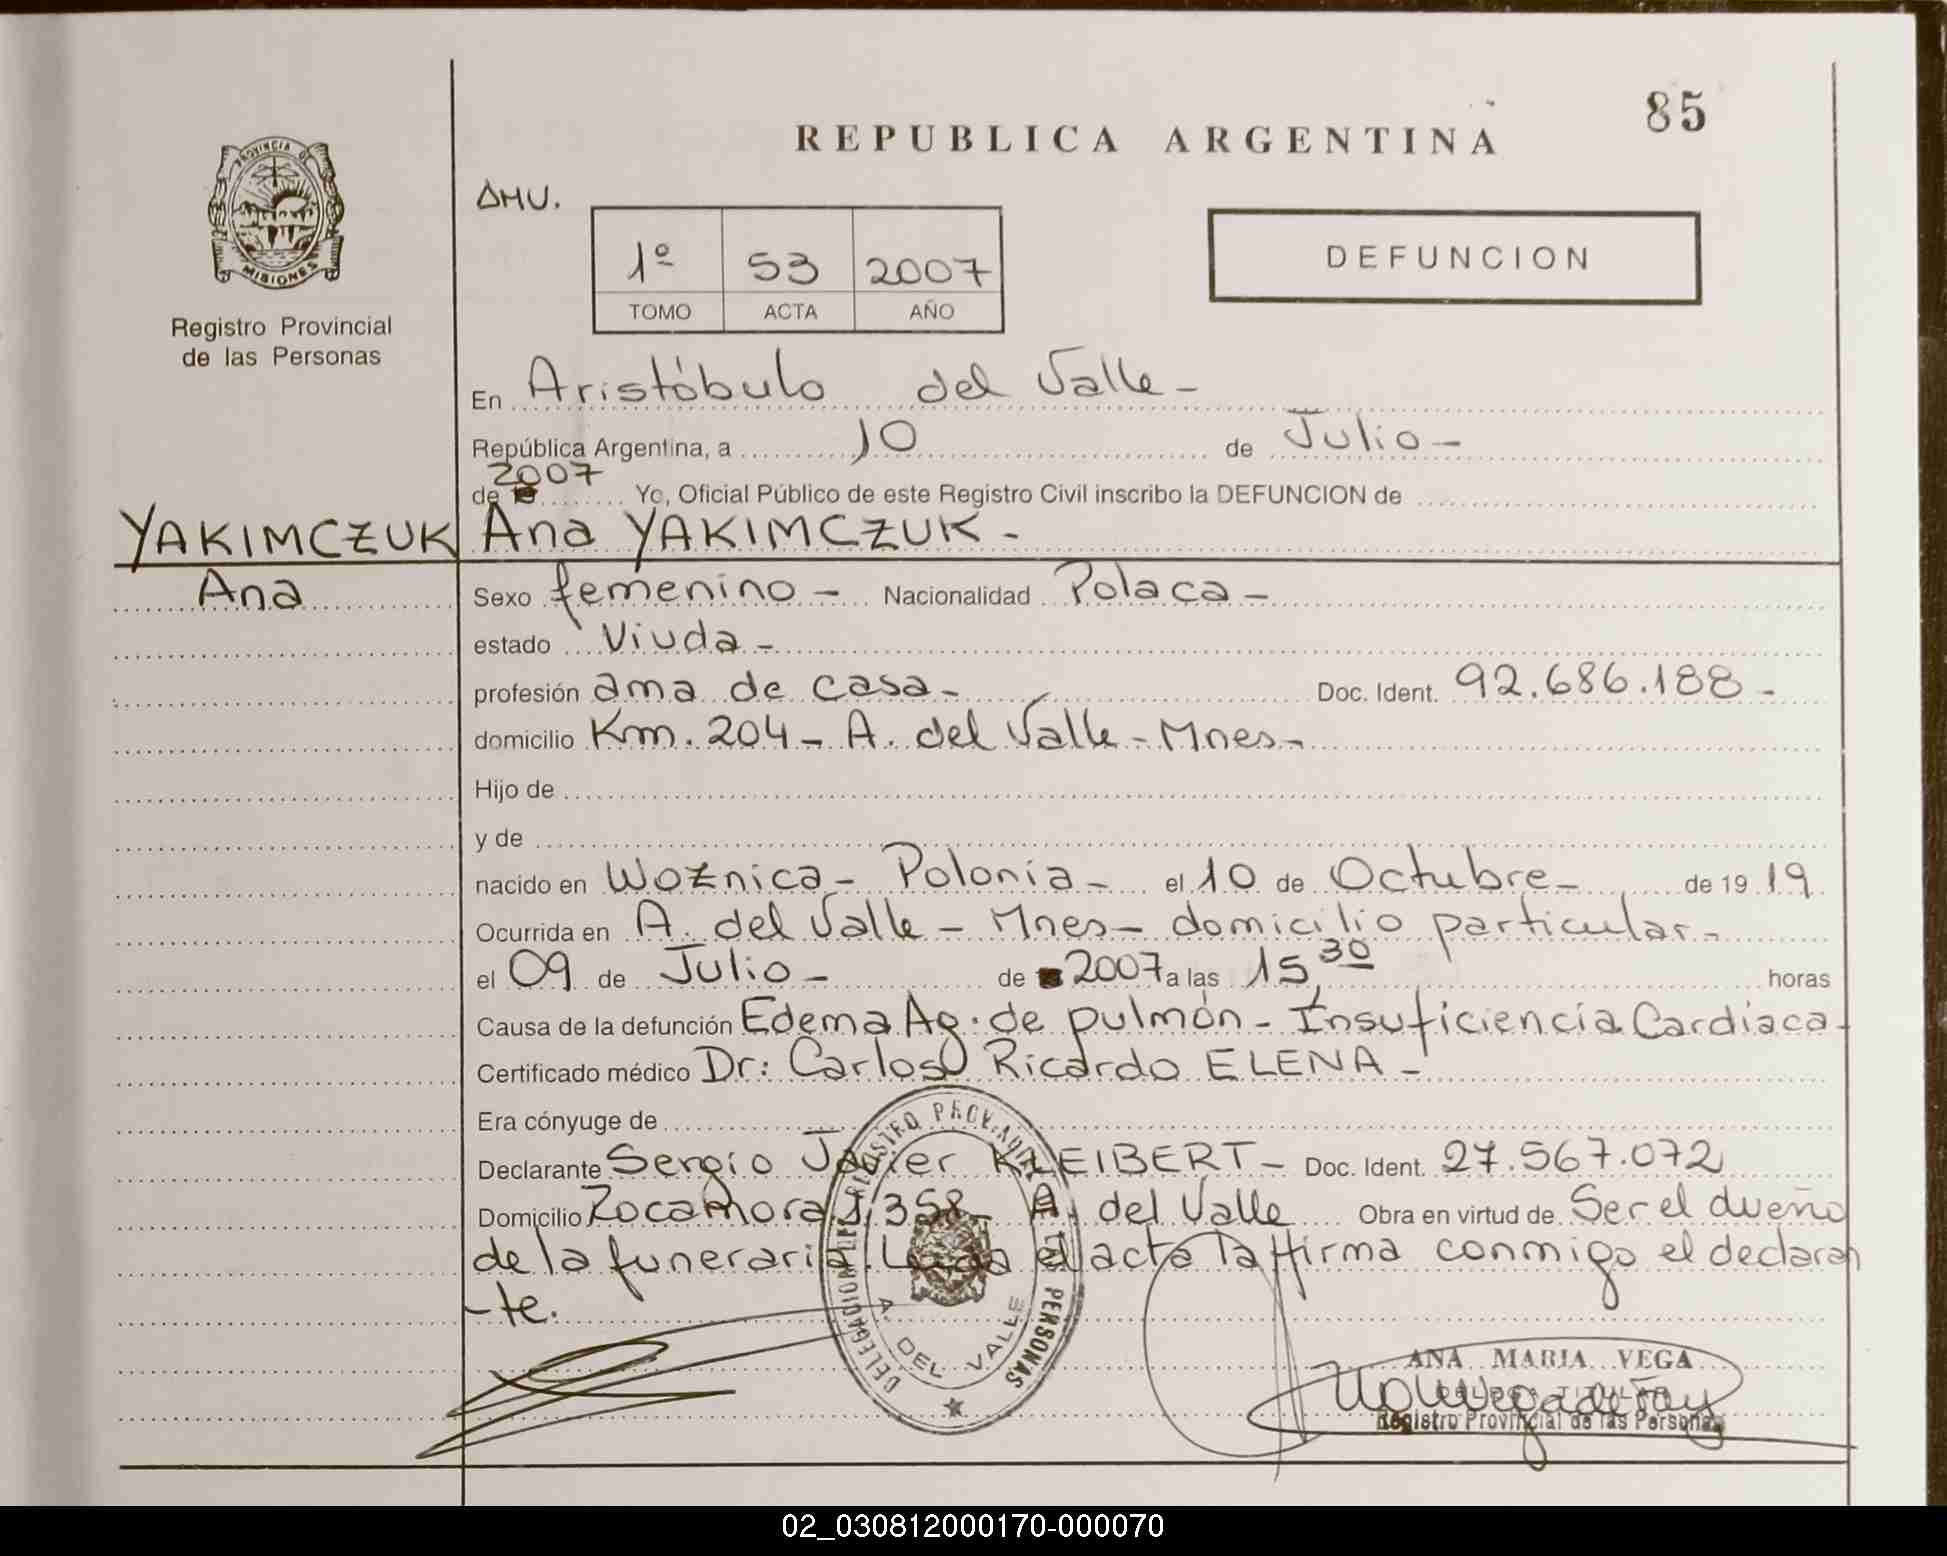 85
REPUBLICA ARGENTINA
PROVINCIA DE
MISIONES
Registro Provincial
de las Personas
AMV.
1º 53 2007
TOMO ACTA AÑO
DEFUNCION
En Aristóbulo del Valle-
República Argentina, a 10 de Julio-
de 2007 Yo, Oficial Público de este Registro Civil inscribo la DEFUNCION de
YAKIMCZUK Ana YAKIMCZUK-
Ana
Sexo femenino- Nacionalidad Polaca-
estado Viuda-
profesión ama de casa- Doc. Ident. 92.686.188-
domicilio Km. 204- A. del Valle- Mnes-
Hijo de
y de
nacido en Woznica- Polonia- el 10 de Octubre- de 19 19
Ocurrida en A. del Valle- Mnes- domicilio particular-
el 09 de Julio- de 2007 a las 15,30 horas
Causa de la defunción Edema Ag. de pulmón- Insuficiencia Cardiaca-
Certificado médico Dr: Carlos Ricardo ELENA-
Era cónyuge de
Declarante Sergio Javier KLEIBERT- Doc. Ident. 27.567.072
Domicilio Rocamora 1.358- A. del Valle Obra en virtud de Ser el dueño
de la funeraria. Leida el acta la firma conmigo el declaran
-te.
DELEGACION DEL REGISTRO PROV. DE LAS PERSONAS
A. DEL VALLE
ANA MARIA VEGA
DELEGADA TITULAR
Registro Provincial de las Personas
02_030812000170-000070